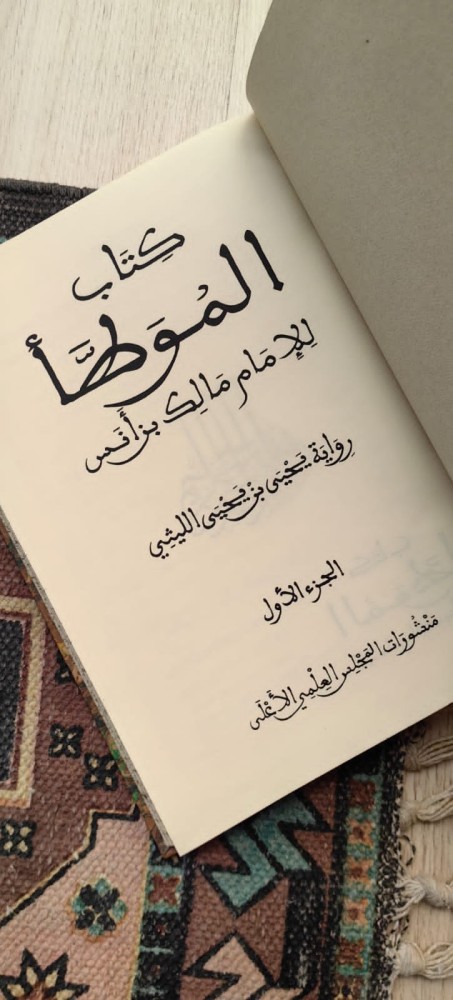 كِتَاب
المُوَطَّأ
لِلإِمَامِ مَالِك بن أَنَس
رِوَايَة يَحْيَى بنْ يَحْيَى الليثِي
الجزء الأول
مَنْشُورَات المَجْلِس العِلْمِي الأَعْلَى